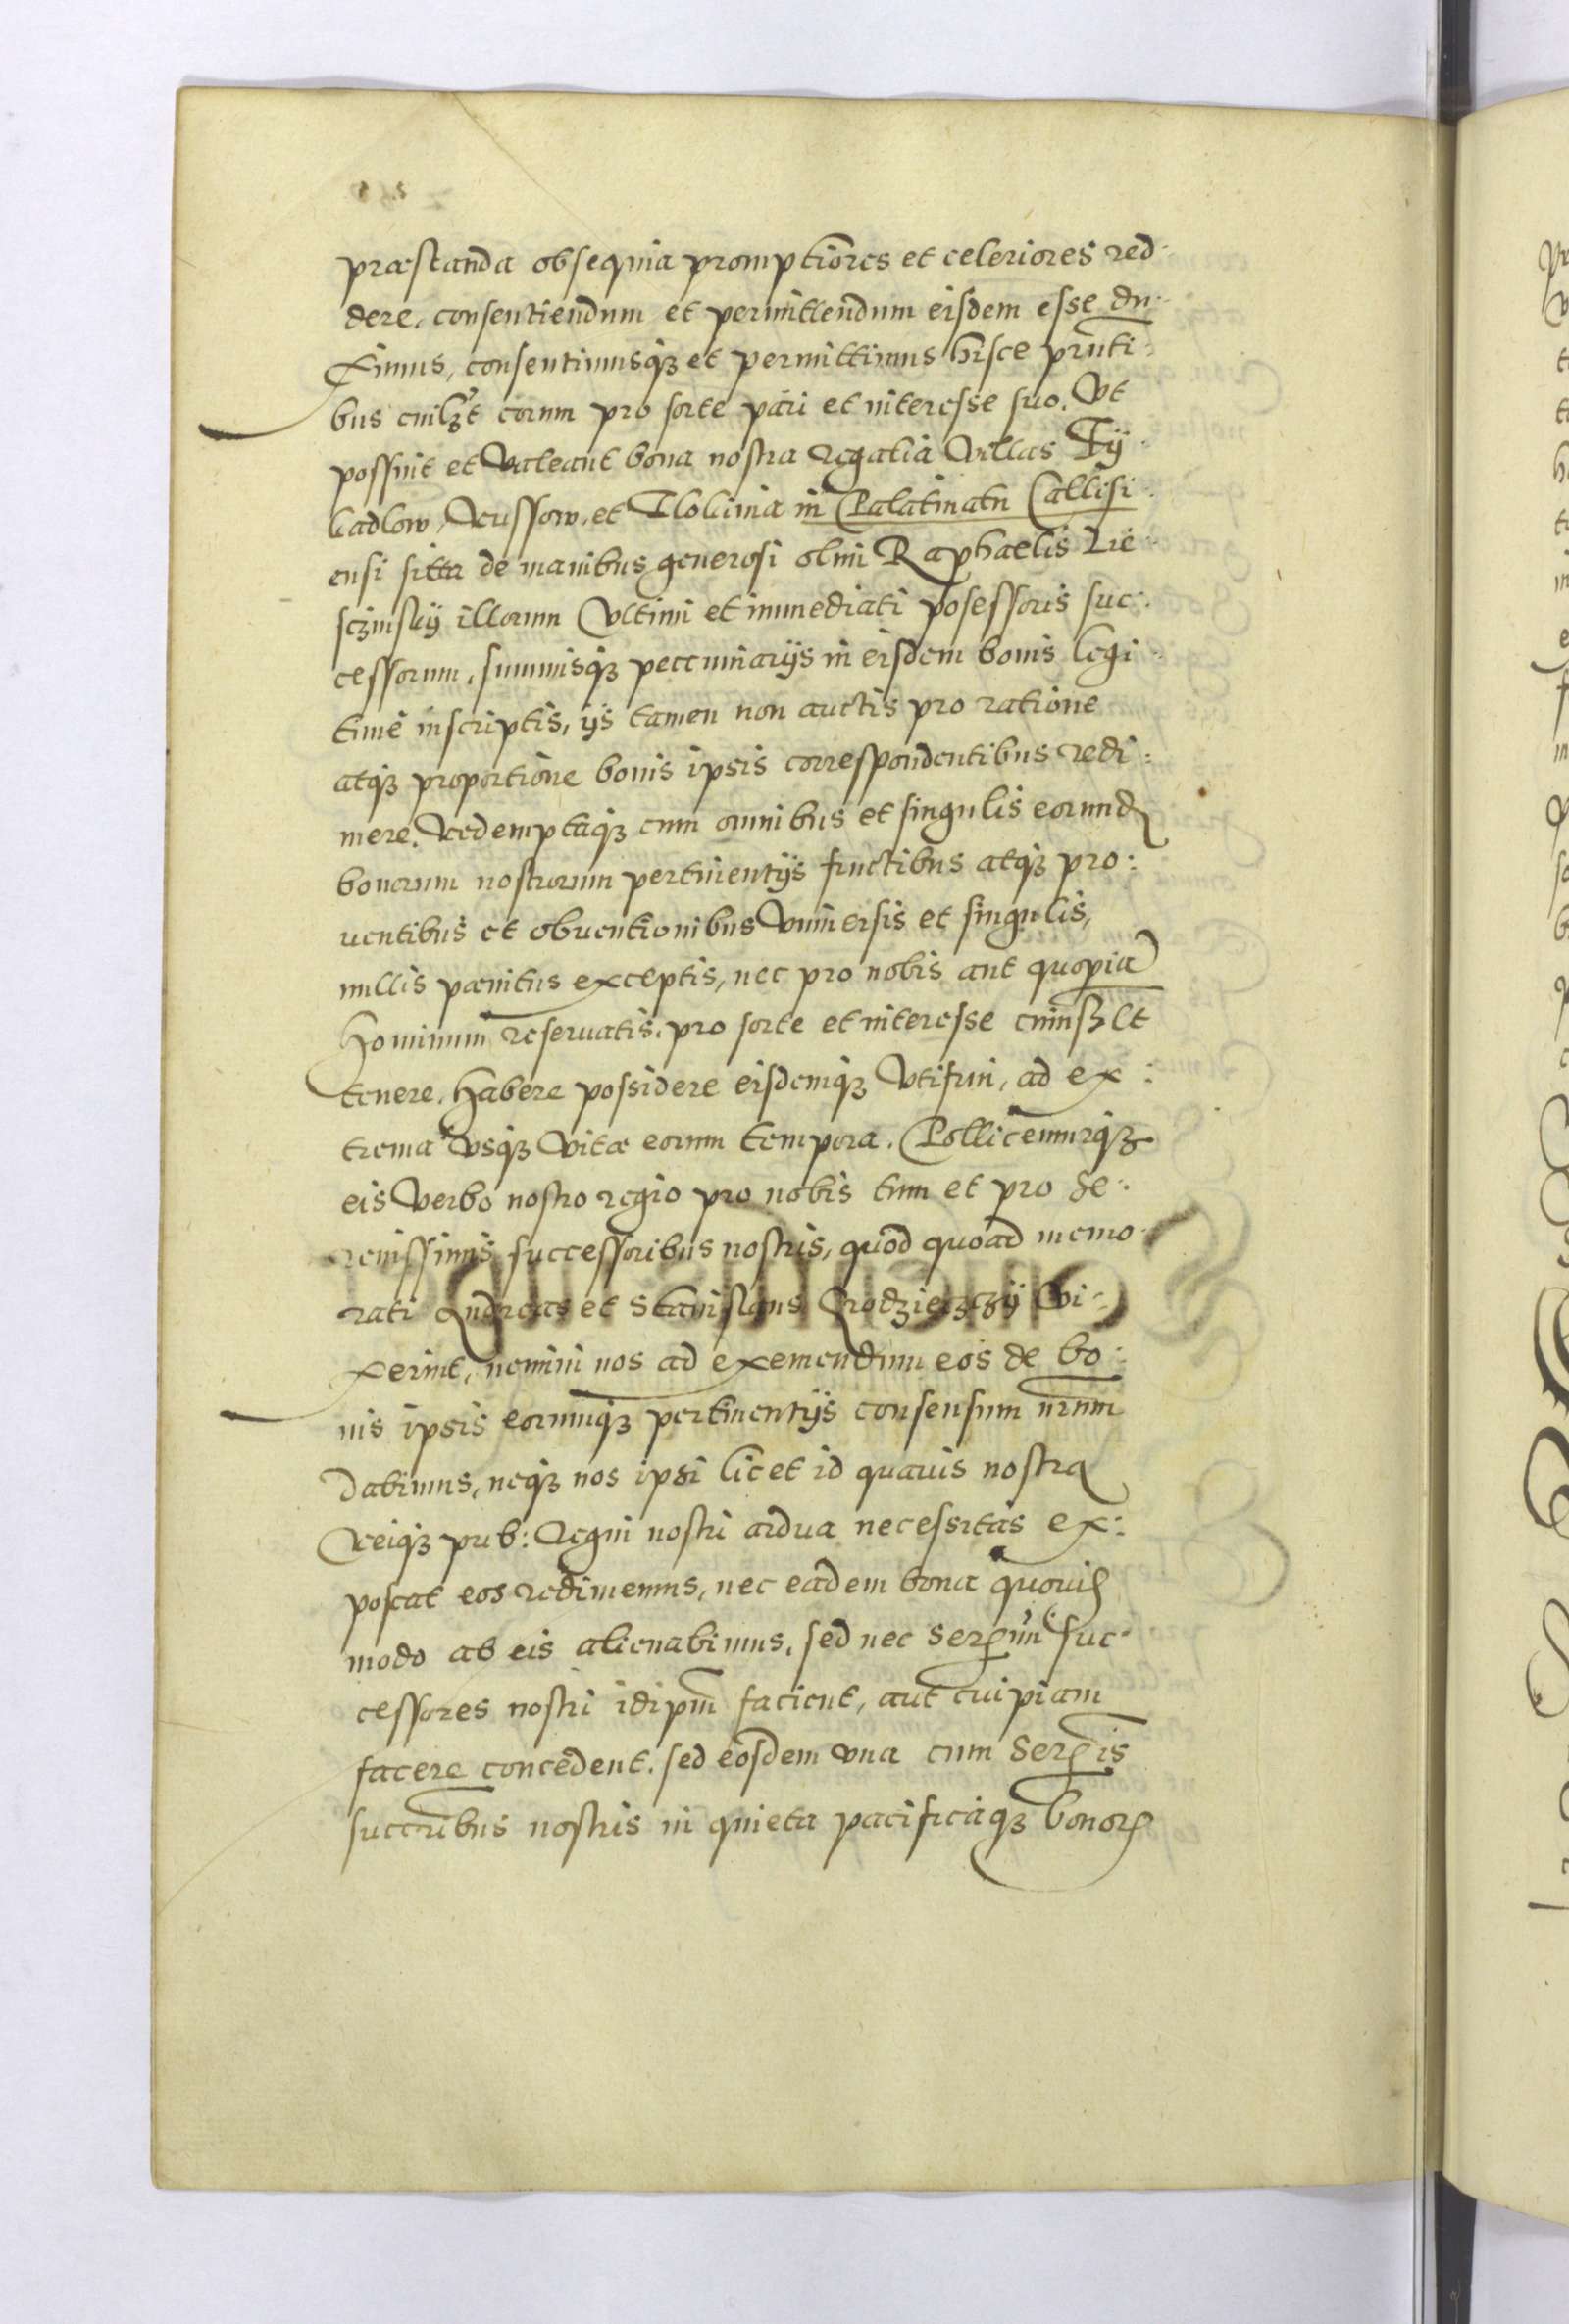 præstanda obsequia promptiores et celeriores red
dere, consentiendum et permittendum eisdem esse du
ximus, consentimusqȝ et permittimus hisce pn̄ti
bus cuilȝt eorum pro sorte pari et interesse suo. Vt
possint et valeant bona nostra regalia villas Ty
hadlow, Russow, et Tloknia in Palatinatu Callisi
ensi sitta de manibus generosi olim Raphaelis Lie
sczinskÿ illorum vltimi et immediati posessoris suc
cessorum, summisqȝ peccuniarijs in eisdem bonis legi
time inscriptis, ijs tamen non auctis pro ratione
atqȝ proportione bonis ipsis correspondentibus redi:
mere. Redemptaqȝ cum omnibus et singulis eorund
bonorum nostrorum pertinentijs fructibus atqȝ pro:
uentibus et obuentionibus vniuersis et singulis,
nullis pænitus exceptis, nec pro nobis aut quopia
hominum reseruatis, pro sorte et interesse cuiuslȝt
tenere, habere possidere eisdemqȝ vtifrui, ad ex:
trema vsqȝ vitæ eorum tempora. Pollicemurqȝ
eis verbo nostro regio pro nobis tum et pro Se:
renissimis successoribus nostris, quod quoad memo
rati Andreas et Stanislaus Grodzieczczÿ vi:
xerint, nemini nos ad exemendum eos de bo:
nis ipsis eorumqȝ pertinentijs consensum nr̄um
dabimus, neqȝ nos ipsi licet id quauis nostra
Reiqȝ pub: Regni nostri ardua necessitas ex:
poscat eos redimemus, nec eadem bona quouis
modo ab eis alienabimus, sed nec Ser̄mi suc
cessores nostri idipm̄ facient, aut cuipiam
facere concedent, sed eosdem vna cum Ser̄is
succr̄ibus nostris in quieta pacificaqȝ bonor